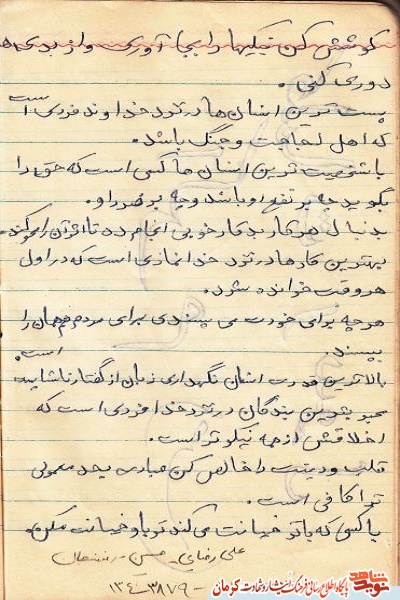 کوشش کن نیکیها را بجا آوری و از بدی ها
دوری کنی.
پست ترین انسان ها در نزد خداوند فردی است
که اهل لجاجت و جنگ باشد.
با شخصیت ترین انسان ها کسی است که حق را
بگوید چه بر نفع او باشد و چه بر ضرر او.
بدنبال هر کار بد کار خوبی انجام ده تا اثر آن را کم کند.
بهترین کارها در نزد خدا نمازی است که در اول
هر وقت خوانده شود.
هر چه برای خودت می پسندی برای مردم هم همان را
بپسند.
بالاترین قدرت انسان نگهداری زبان از گفتار ناشایسته است.
محبوبترین بندگان در نزد خدا فردی است که
اخلاقش از همه نیکوتر است.
قلب و نیتت را خالص کن عبادت بحد معمولی
ترا کافی است.
با کسی که با تو خیانت می کند تو با او خیانت مکن.
علی رضایی - حسن -
نوید شاهد
پایگاه اطلاع رسانی فرهنگ ایثار و شهادت کرمان